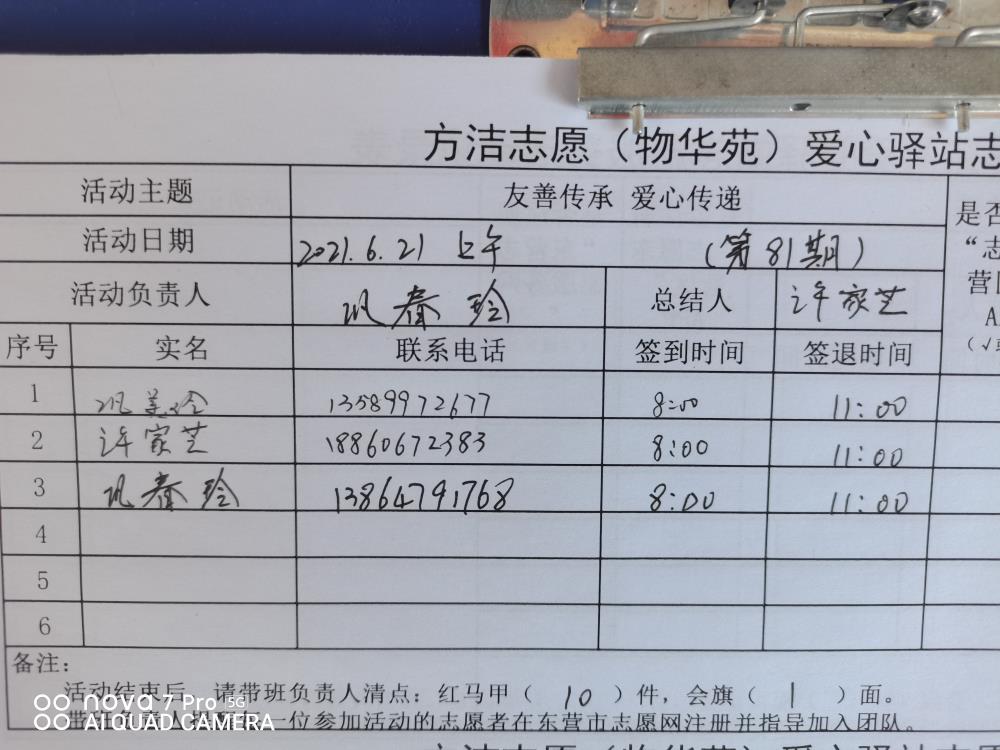 方洁志愿（物华苑）爱心驿站志
活动主题 友善传承 爱心传递
是否
活动日期 2021.6.21 上午 （第81期）
“志
营区
活动负责人 巩春玲 总结人 许家芝
A
（√或
序号 实名 联系电话 签到时间 签退时间
1 巩美玲 13589972677 8:00 11:00
2 许家芝 18860672383 8:00 11:00
3 巩春玲 13864791768 8:00 11:00
4
5
6
备注：
活动结束后，请带班负责人清点：红马甲（ 10 ）件，会旗（ 1 ）面。
带班负责人 一位参加活动的志愿者在东营市志愿网注册并指导加入团队。
nova 7 Pro 5G
AI QUAD CAMERA
方洁志愿（物华苑）爱心驿站志